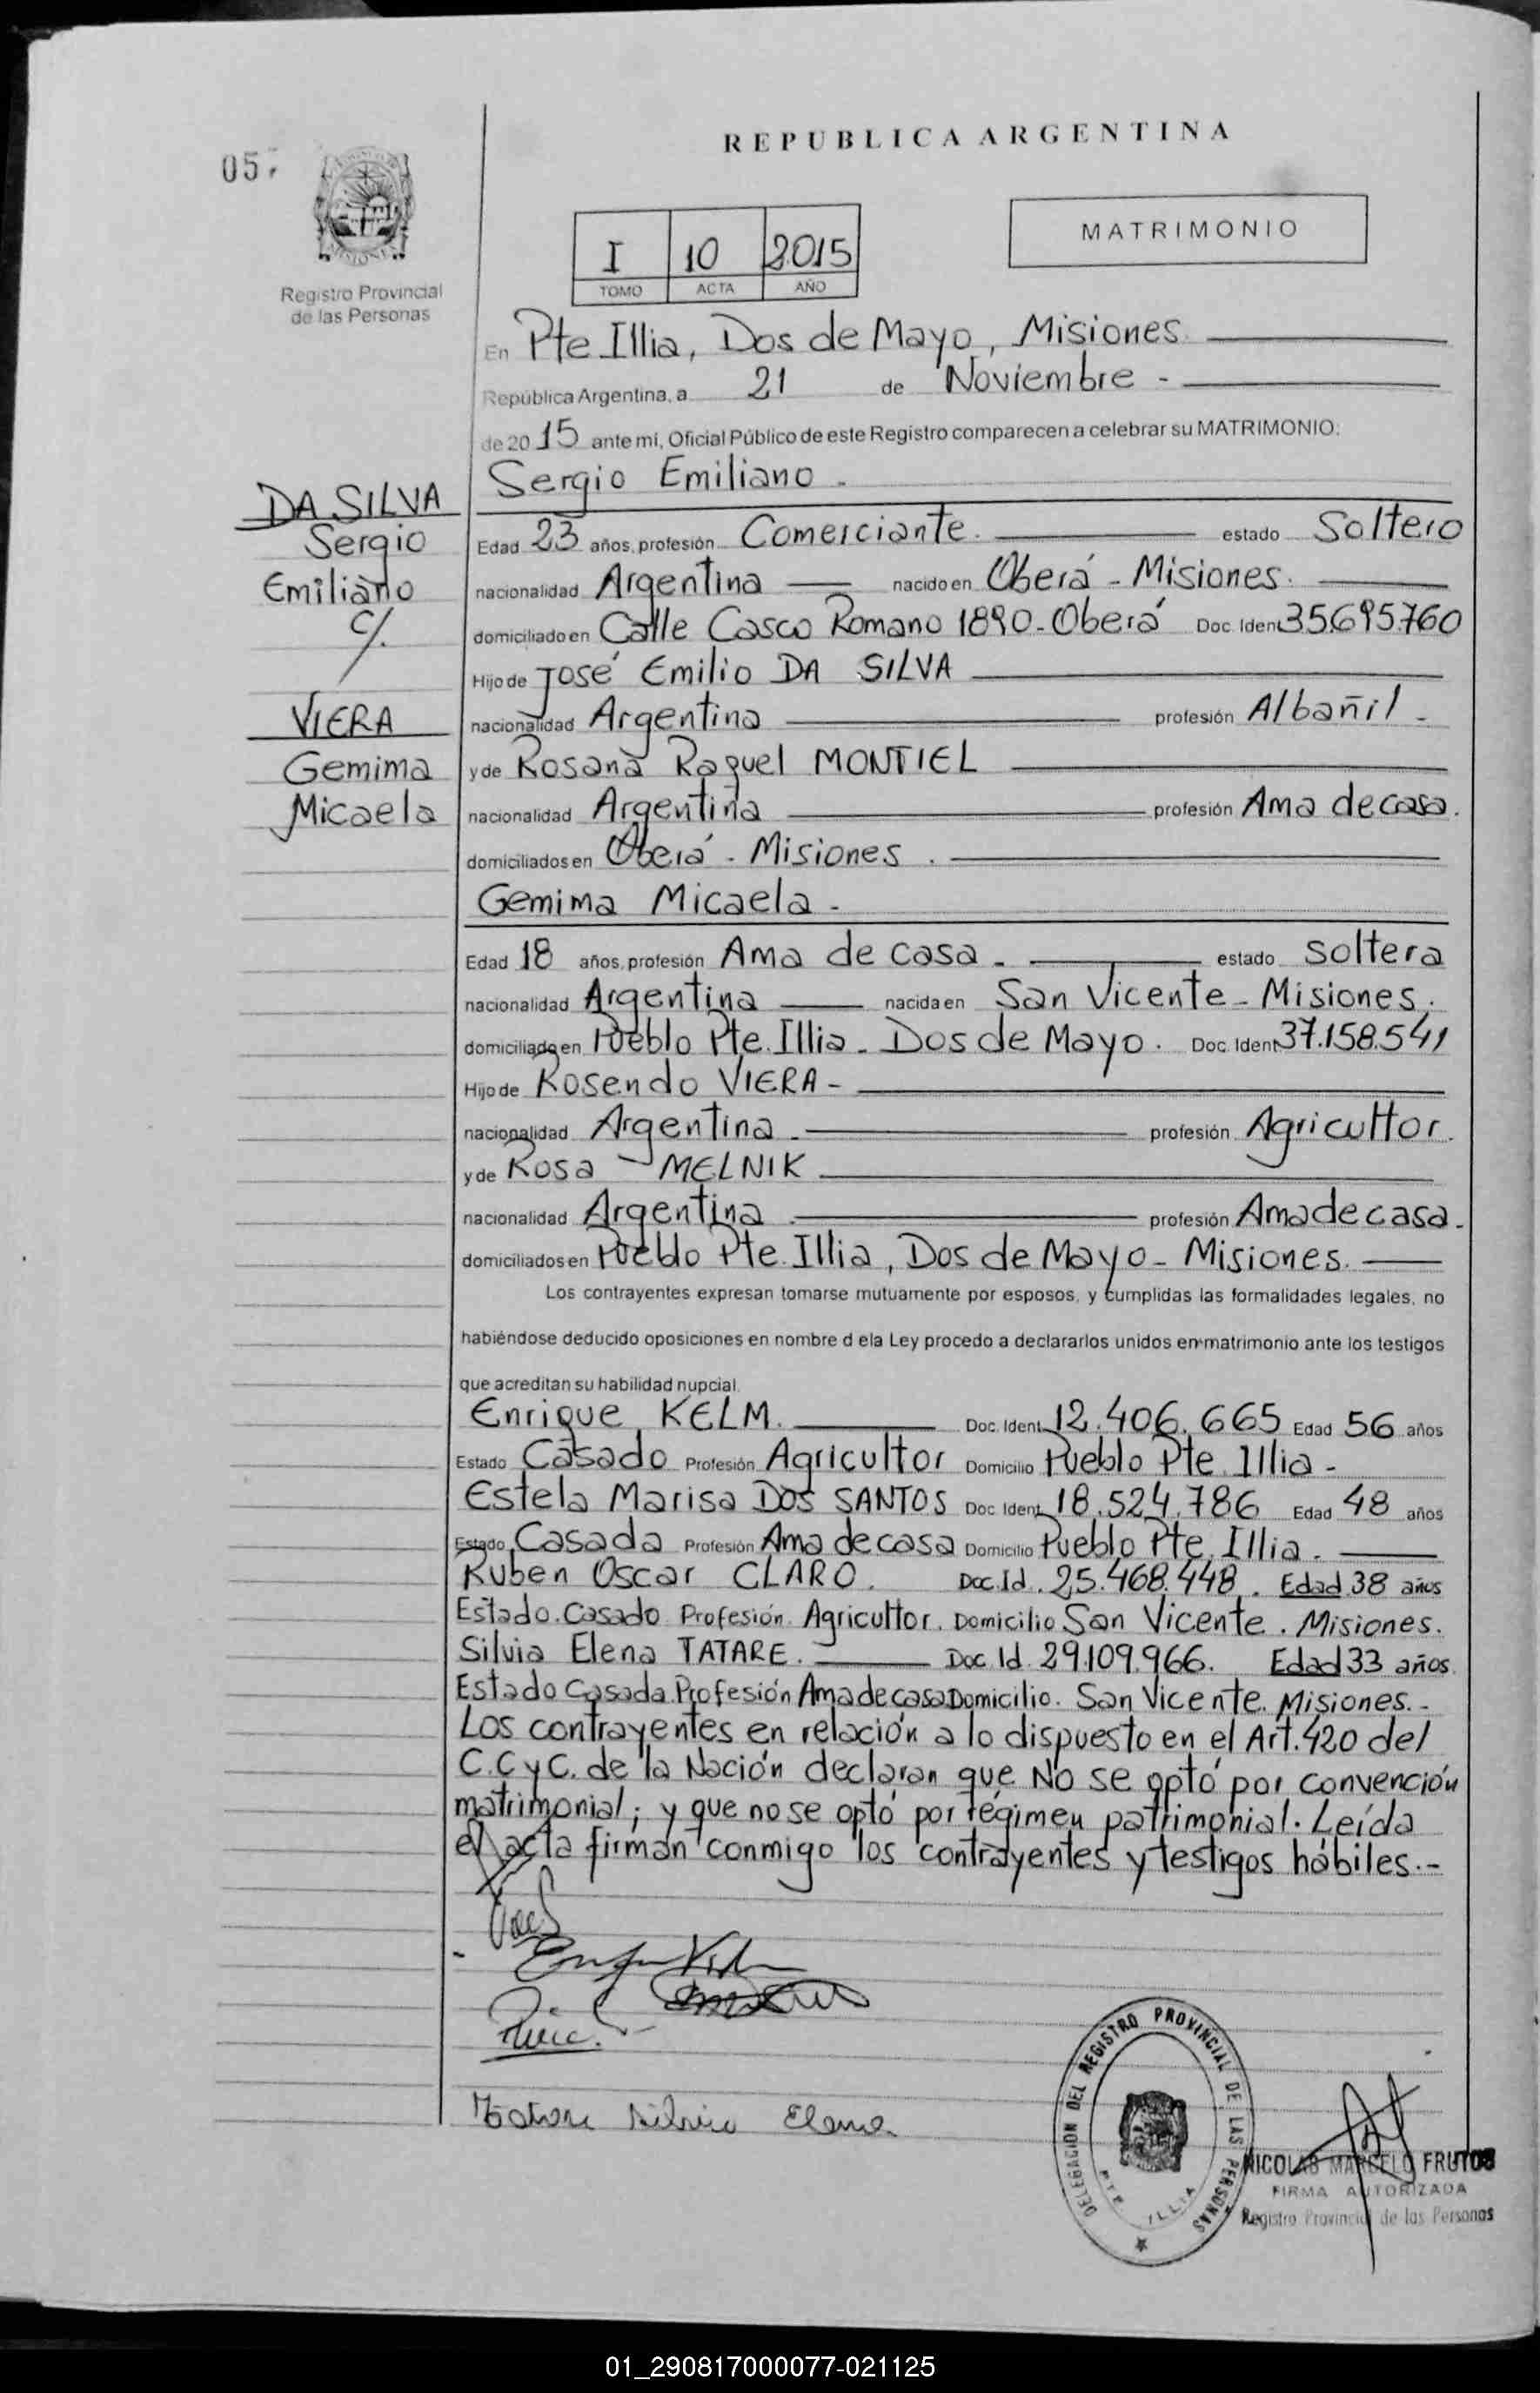 REPUBLICA ARGENTINA
05
MISIONES
Registro Provincial
de las Personas
I 10 2015
TOMO ACTA AÑO
MATRIMONIO
En Pte Illia, Dos de Mayo, Misiones.
República Argentina, a 21 de Noviembre -
de 20 15 ante mi, Oficial Público de este Registro comparecen a celebrar su MATRIMONIO:
DA SILVA
Sergio
Emiliano
c/.
VIERA
Gemima
Micaela
Sergio Emiliano -
Edad 23 años, profesión Comerciante. estado Soltero
nacionalidad Argentina nacido en Oberá - Misiones.
domiciliado en Calle Casco Romano 1890 - Oberá Doc. Ident 35.695.760
Hijo de José Emilio DA SILVA
nacionalidad Argentina profesión Albañil -
y de Rosana Raquel MONTIEL
nacionalidad Argentina profesión Ama de casa.
domiciliados en Oberá - Misiones .
Gemima Micaela -
Edad 18 años, profesión Ama de casa - estado Soltera
nacionalidad Argentina nacida en San Vicente - Misiones.
domiciliado en Pueblo Pte. Illia - Dos de Mayo . Doc. Ident 37.158.541
Hijo de Rosendo VIERA -
nacionalidad Argentina - profesión Agricultor.
y de Rosa - MELNIK
nacionalidad Argentina . profesión Ama de casa -
domiciliados en Pueblo Pte. Illia, Dos de Mayo - Misiones.
Los contrayentes expresan tomarse mutuamente por esposos, y cumplidas las formalidades legales, no
habiéndose deducido oposiciones en nombre d ela Ley procedo a declararlos unidos en matrimonio ante los testigos
que acreditan su habilidad nupcial.
Enrique KELM. Doc. Ident. 12.406.665 Edad 56 años
Estado Casado Profesión Agricultor Domicilio Pueblo Pte. Illia -
Estela Marisa DOS SANTOS Doc. Ident. 18.524.786 Edad 48 años
Estado Casada Profesión Ama de casa Domicilio Pueblo Pte. Illia.
Ruben Oscar CLARO. Doc. Id. 25.468.448. Edad 38 años
Estado. Casado Profesión. Agricultor. Domicilio San Vicente. Misiones.
Silvia Elena TATARE. Doc. Id. 29.109.966. Edad 33 años.
Estado Casada Profesión Ama de casa Domicilio. San Vicente. Misiones. -
Los contrayentes en relación a lo dispuesto en el Art. 420 del
C.C y C. de la Nación declaran que NO se optó por convención
matrimonial; y que no se optó por régimen patrimonial. Leída
el acta firman conmigo los contrayentes y testigos hábiles.-
Silvia Elena
DELEGACION DEL REGISTRO PROVINCIAL DE LAS PERSONAS
PTE. ILLIA
NICOLAS MARCELO FRUTOS
FIRMA AUTORIZADA
Registro Provincial de las Personas
01_290817000077-021125